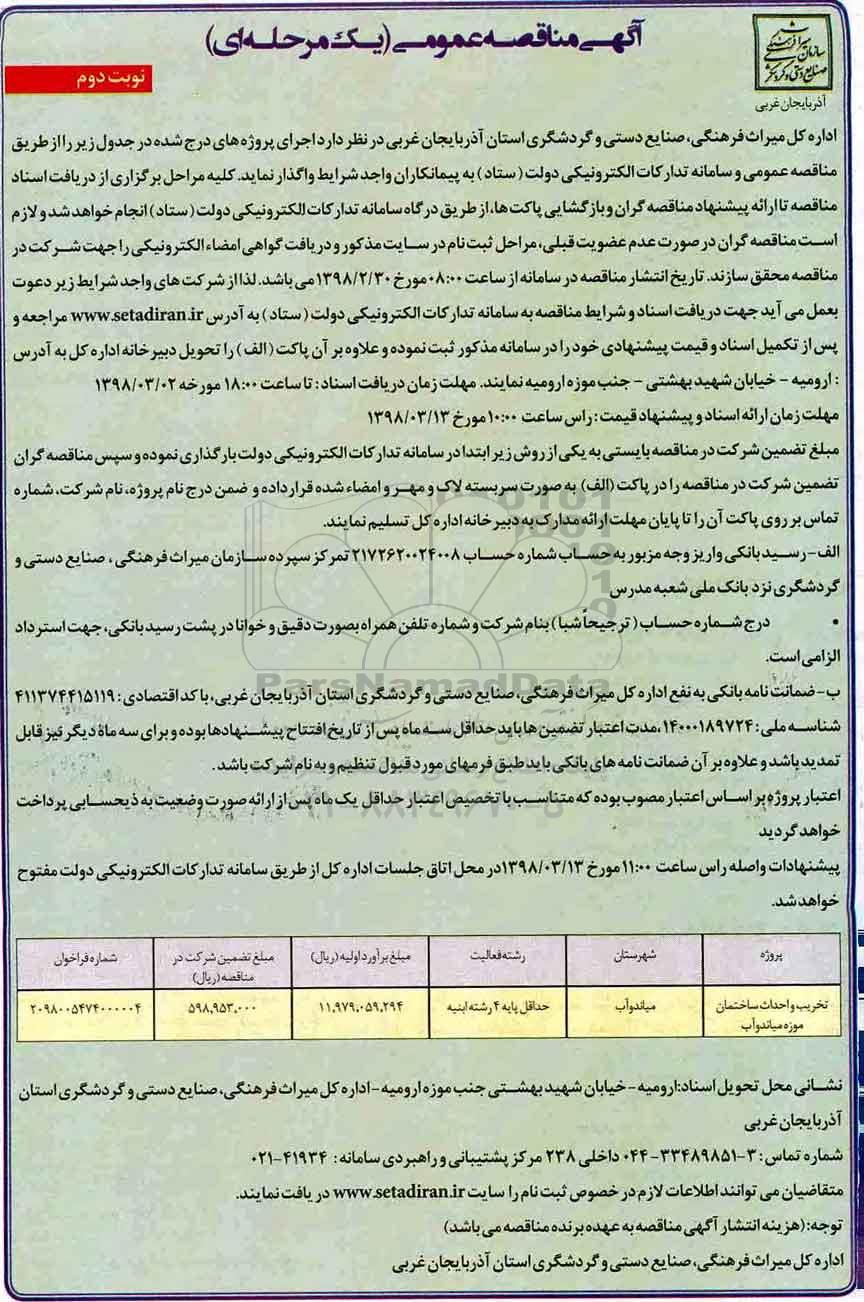 آگهی مناقصه عمومی (یک مرحله‌ای)
سازمان میراث فرهنگی
صنایع دستی و گردشگری
آذربایجان غربی
نوبت دوم
اداره کل میراث فرهنگی، صنایع دستی و گردشگری استان آذربایجان غربی در نظر دارد اجرای پروژه های درج شده در جدول زیر را از طریق
مناقصه عمومی و سامانه تدارکات الکترونیکی دولت (ستاد) به پیمانکاران واجد شرایط واگذار نماید. کلیه مراحل برگزاری از دریافت اسناد
مناقصه تا ارائه پیشنهاد مناقصه گران و بازگشایی پاکت‌ها، از طریق درگاه سامانه تدارکات الکترونیکی دولت (ستاد) انجام خواهد شد و لازم
است مناقصه گران در صورت عدم عضویت قبلی، مراحل ثبت نام در سایت مذکور و دریافت گواهی امضاء الکترونیکی را جهت شرکت در
مناقصه محقق سازند. تاریخ انتشار مناقصه در سامانه از ساعت ۰۸:۰۰ مورخ ۱۳۹۸/۲/۳۰ می باشد. لذا از شرکت های واجد شرایط زیر دعوت
بعمل می آید جهت دریافت اسناد و شرایط مناقصه به سامانه تدارکات الکترونیکی دولت (ستاد) به آدرس www.setadiran.ir مراجعه و
پس از تکمیل اسناد و قیمت پیشنهادی خود را در سامانه مذکور ثبت نموده و علاوه بر آن پاکت (الف) را تحویل دبیرخانه اداره کل به آدرس
: ارومیه - خیابان شهید بهشتی - جنب موزه ارومیه نمایند. مهلت زمان دریافت اسناد : تا ساعت ۱۸:۰۰ مورخه ۱۳۹۸/۰۳/۰۲
مهلت زمان ارائه اسناد و پیشنهاد قیمت : راس ساعت ۱۰:۰۰ مورخ ۱۳۹۸/۰۳/۱۳
مبلغ تضمین شرکت در مناقصه بایستی به یکی از روش زیر ابتدا در سامانه تدارکات الکترونیکی دولت بارگذاری نموده و سپس مناقصه گران
تضمین شرکت در مناقصه را در پاکت (الف) به صورت سربسته لاک و مهر و امضاء شده قرار داده و ضمن درج نام پروژه، نام شرکت، شماره
تماس بر روی پاکت آن را تا پایان مهلت ارائه مدارک به دبیرخانه اداره کل تسلیم نمایند.
الف- رسید بانکی واریز وجه مزبور به حساب شماره حساب ۲۱۷۲۶۲۰۰۲۴۰۰۸ تمرکز سپرده سازمان میراث فرهنگی، صنایع دستی و
گردشگری نزد بانک ملی شعبه مدرس
• درج شماره حساب (ترجیحاً شبا) بنام شرکت و شماره تلفن همراه بصورت دقیق و خوانا در پشت رسید بانکی، جهت استرداد
الزامی است.
ParsNamadData
ب- ضمانت نامه بانکی به نفع اداره کل میراث فرهنگی، صنایع دستی و گردشگری استان آذربایجان غربی، با کد اقتصادی: ۴۱۱۳۷۴۴۱۵۱۱۹
شناسه ملی: ۱۴۰۰۰۱۸۹۷۲۴، مدت اعتبار تضمین ها باید حداقل سه ماه پس از تاریخ افتتاح پیشنهادها بوده و برای سه ماه دیگر نیز قابل
تمدید باشد و علاوه بر آن ضمانت نامه های بانکی باید طبق فرمهای مورد قبول تنظیم و به نام شرکت باشد.
اعتبار پروژه بر اساس اعتبار مصوب بوده که متناسب با تخصیص اعتبار حداقل یک ماه پس از ارائه صورت وضعیت به ذیحسابی پرداخت
خواهد گردید
پیشنهادات واصله راس ساعت ۱۱:۰۰ مورخ ۱۳۹۸/۰۳/۱۳ در محل اتاق جلسات اداره کل از طریق سامانه تدارکات الکترونیکی دولت مفتوح
خواهد شد.
پروژه شهرستان رشته فعالیت مبلغ برآورد اولیه (ریال) مبلغ تضمین شرکت در مناقصه (ریال) شماره فراخوان
تخریب و احداث ساختمان موزه میاندوآب میاندوآب حداقل پایه ۴ رشته ابنیه ۱۱,۹۷۹,۰۵۹,۲۹۴ ۵۹۸,۹۵۳,۰۰۰ ۲۰۹۸۰۰۵۴۷۴۰۰۰۰۰۴
نشانی محل تحویل اسناد: ارومیه - خیابان شهید بهشتی جنب موزه ارومیه - اداره کل میراث فرهنگی، صنایع دستی و گردشگری استان
آذربایجان غربی
شماره تماس: ۳-۳۳۴۸۹۸۵۱-۰۴۴ داخلی ۲۳۸ مرکز پشتیبانی و راهبردی سامانه: ۴۱۹۳۴-۰۲۱
متقاضیان می توانند اطلاعات لازم در خصوص ثبت نام را سایت www.setadiran.ir دریافت نمایند.
توجه: (هزینه انتشار آگهی مناقصه به عهده برنده مناقصه می باشد)
اداره کل میراث فرهنگی، صنایع دستی و گردشگری استان آذربایجان غربی